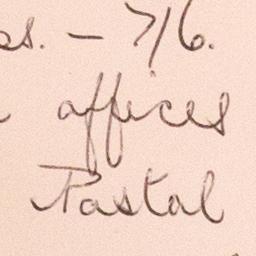 os. – 7/6.
offices
Postal